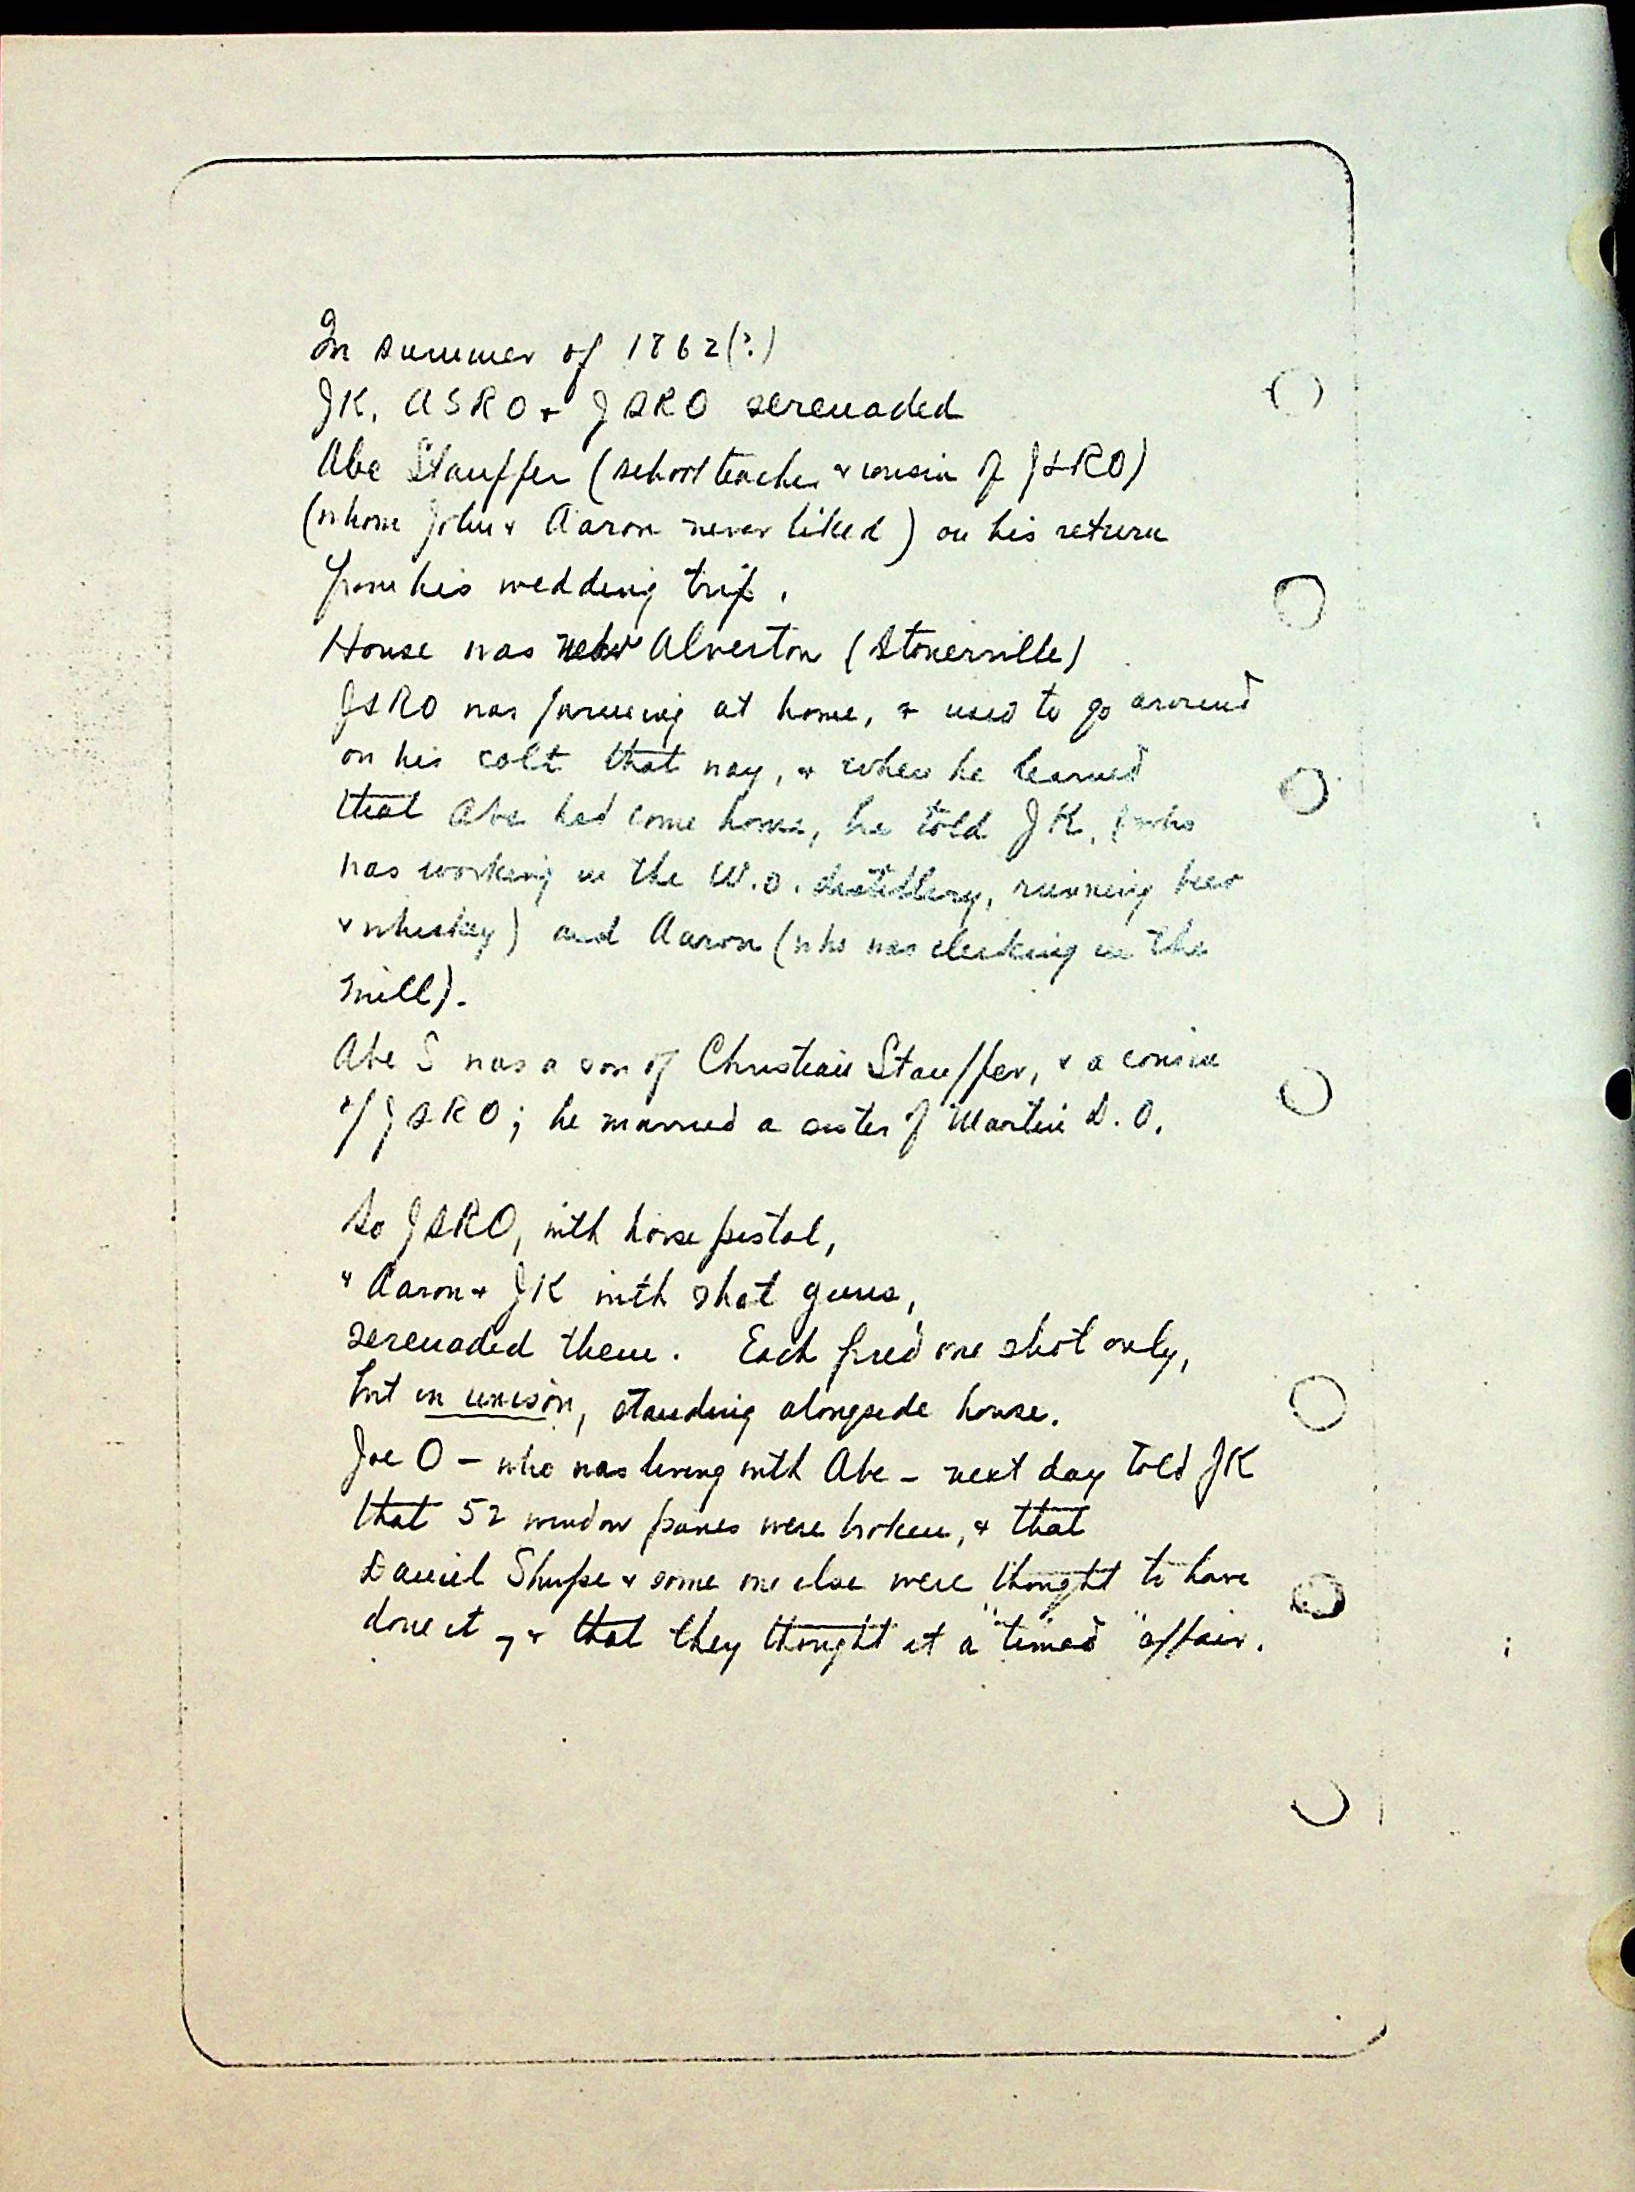 In summer of 1862(?)
JK, ASRO & JSRO serenaded
Abe Stauffer (school teacher & cousin of JSRO)
(whom John & Aaron never liked) on his return
from his wedding trip.
House was near Alverton (Stonerville)
JSRO was farming at home, & used to go around
on his colt that way, & when he learned
that Abe had come home, he told JK, (who
was working in the W.O. distillery, running beer
& whiskey) and Aaron (who was clerking in the
mill).
Abe S was a son of Christian Stauffer, & a cousin
of JSRO; he married a sister of Martin S. O.
So JSRO, with horse pistol,
& Aaron & JK with shot guns,
serenaded them. Each fired one shot only,
but in unison, standing alongside house.
Joe O – who was living with Abe – next day told JK
that 52 window panes were broken, & that
Daniel Shupe & some one else were thought to have
done it, & that they thought it a "timed" affair.